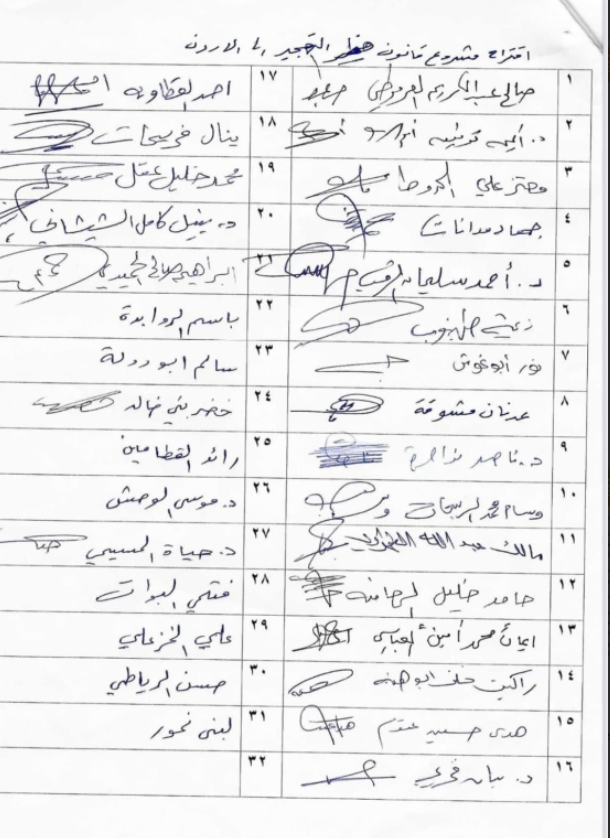 اقتراح مشروع قانون حظر التهجير الى الاردن
١ صالح عبدالكريم العرموطي
٢ د. ايمه
٣ معتز علي الهروط
٤ جهاد مدانات
٥ د. أحمد سليمان الرقب
٦ زعيتر
٧ نور أبوغوش
٨ عدنان مشوقة
٩ د. ناصر نواصرة
١٠ وسام محمد الربيحات
١١ مالك عبد الله الطهراوي
١٢ حامد خليل الرحامنه
١٣ ايمان محمد أمين العباسي
١٤ راكين خلف ابو هنيه
١٥ هدى حسين عتوم
١٦ د. بيان فخري
١٧ احمد القطاونه
١٨ ينال فريحات
١٩ محمد خليل عقل
٢٠ د. نبيل كامل الشيشاني
٢١ ابراهيم صالح الحميدي
٢٢ باسم الروابدة
٢٣ سالم ابو دولة
٢٤ خضر بني خالد
٢٥ رائد القطامين
٢٦ د. موسى الوحش
٢٧ د. حياة المسيمي
٢٨ فتحي البوات
٢٩ علي الخزعلي
٣٠ حسن الرياطي
٣١ لبنى نمور
٣٢